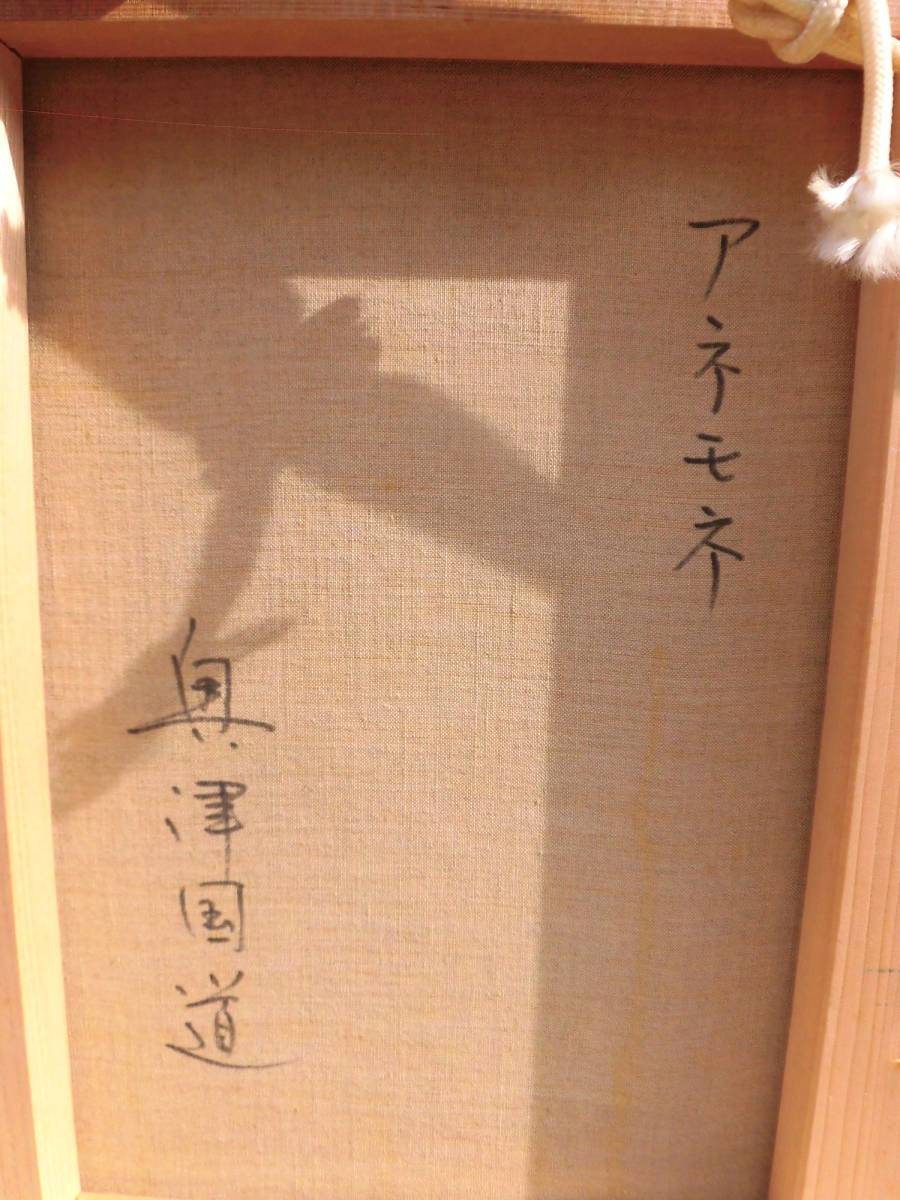 アネモネ
奥津国道